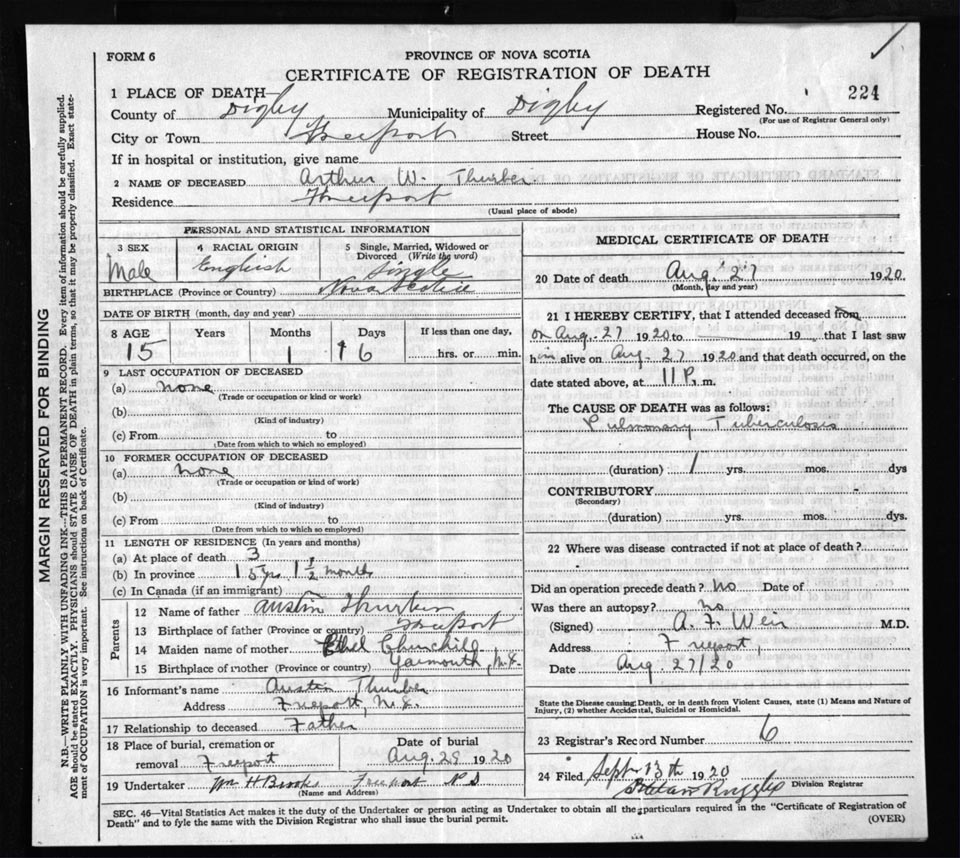 FORM 6
PROVINCE OF NOVA SCOTIA
CERTIFICATE OF REGISTRATION OF DEATH
1 PLACE OF DEATH
224
County of Digby Municipality of Digby Registered No.
(For use of Registrar General only)
City or Town Freeport Street House No.
If in hospital or institution, give name
2 NAME OF DECEASED Arthur W. Thurber
Residence Freeport
(Usual place of abode)
PERSONAL AND STATISTICAL INFORMATION
3 SEX 4 RACIAL ORIGIN 5 Single, Married, Widowed or Divorced (Write the word)
Male English Single
BIRTHPLACE (Province or Country) Nova Scotia
DATE OF BIRTH (month, day and year)
8 AGE Years Months Days If less than one day,
15 1 16 hrs. or min.
9 LAST OCCUPATION OF DECEASED
(a) none
(Trade or occupation or kind or work)
(b)
(Kind of industry)
(c) From to
(Date from which to which so employed)
10 FORMER OCCUPATION OF DECEASED
(a) none
(Trade or occupation or kind of work)
(b)
(Kind of industry)
(c) From to
(Date from which to which so employed)
11 LENGTH OF RESIDENCE (In years and months)
(a) At place of death 3
(b) In province 15 yrs. 1 1/2 months
(c) In Canada (if an immigrant)
Parents
12 Name of father Austin Thurber
13 Birthplace of father (Province or country) Freeport
14 Maiden name of mother Ethel Churchill
15 Birthplace of mother (Province or country) Yarmouth, N.S.
16 Informant's name Austin Thurber
Address Freeport, N.S.
17 Relationship to deceased Father
18 Place of burial, cremation or removal Freeport
Date of burial
Aug. 29 1920
19 Undertaker Wm H Brooks Freeport N S
(Name and Address)
MEDICAL CERTIFICATE OF DEATH
20 Date of death Aug. 27 1920
(Month, day and year)
21 I HEREBY CERTIFY, that I attended deceased from
on Aug. 27 1920 to 19 , that I last saw
him alive on Aug. 27 1920 and that death occurred, on the
date stated above, at 11 P. m.
The CAUSE OF DEATH was as follows:
Pulmonary Tuberculosis
(duration) 1 yrs. mos. dys
CONTRIBUTORY
(Secondary)
(duration) yrs. mos. dys.
22 Where was disease contracted if not at place of death?
Did an operation precede death? No Date of
Was there an autopsy? No
(Signed) A. F. Weir M.D.
Address Freeport,
Date Aug. 27/20
State the Disease causing Death, or in death from Violent Causes, state (1) Means and Nature of
Injury, (2) whether Accidental, Suicidal or Homicidal.
23 Registrar's Record Number 6
24 Filed Sept 13th 1920
Division Registrar
SEC. 46—Vital Statistics Act makes it the duty of the Undertaker or person acting as Undertaker to obtain all the particulars required in the "Certificate of Registration of
Death" and to fyle the same with the Division Registrar who shall issue the burial permit.
(OVER)
MARGIN RESERVED FOR BINDING
N.B.—WRITE PLAINLY WITH UNFADING INK—THIS IS A PERMANENT RECORD. Every item of information should be carefully supplied.
AGE should be stated EXACTLY. PHYSICIANS should STATE CAUSE OF DEATH in plain terms, so that it may be properly classified. Exact statement of OCCUPATION is very important. See instructions on back of Certificate.